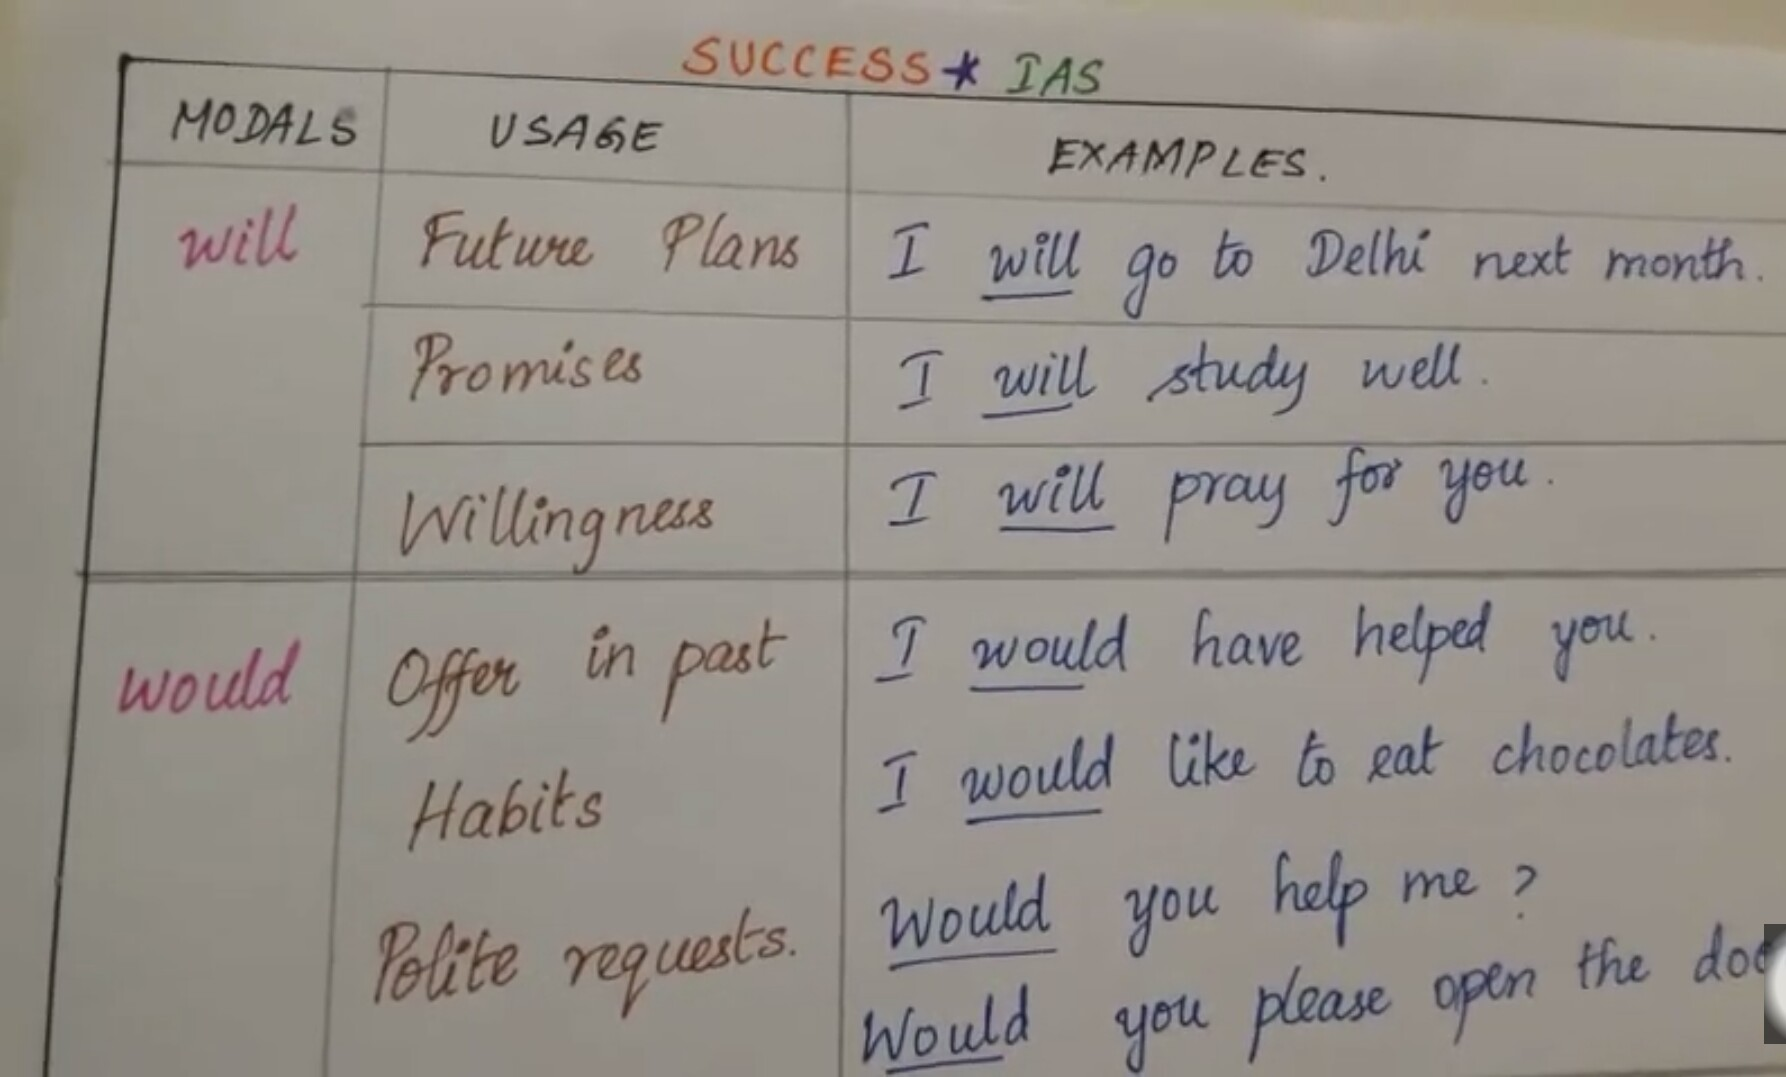 SUCCESS * IAS
MODALS USAGE EXAMPLES.
will Future Plans I will go to Delhi next month.
Promises I will study well.
Willingness I will pray for you.
would Offer in past I would have helped you.
Habits I would like to eat chocolates.
Polite requests. Would you help me ?
Would you please open the